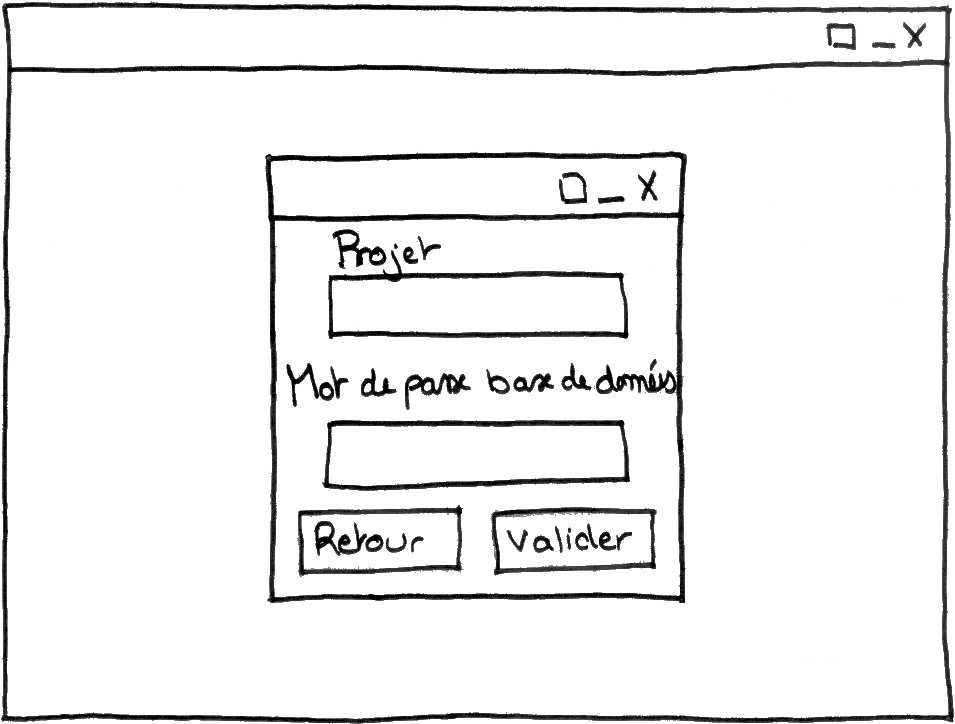 Projet
Mot de passe base de données
Retour
Valider